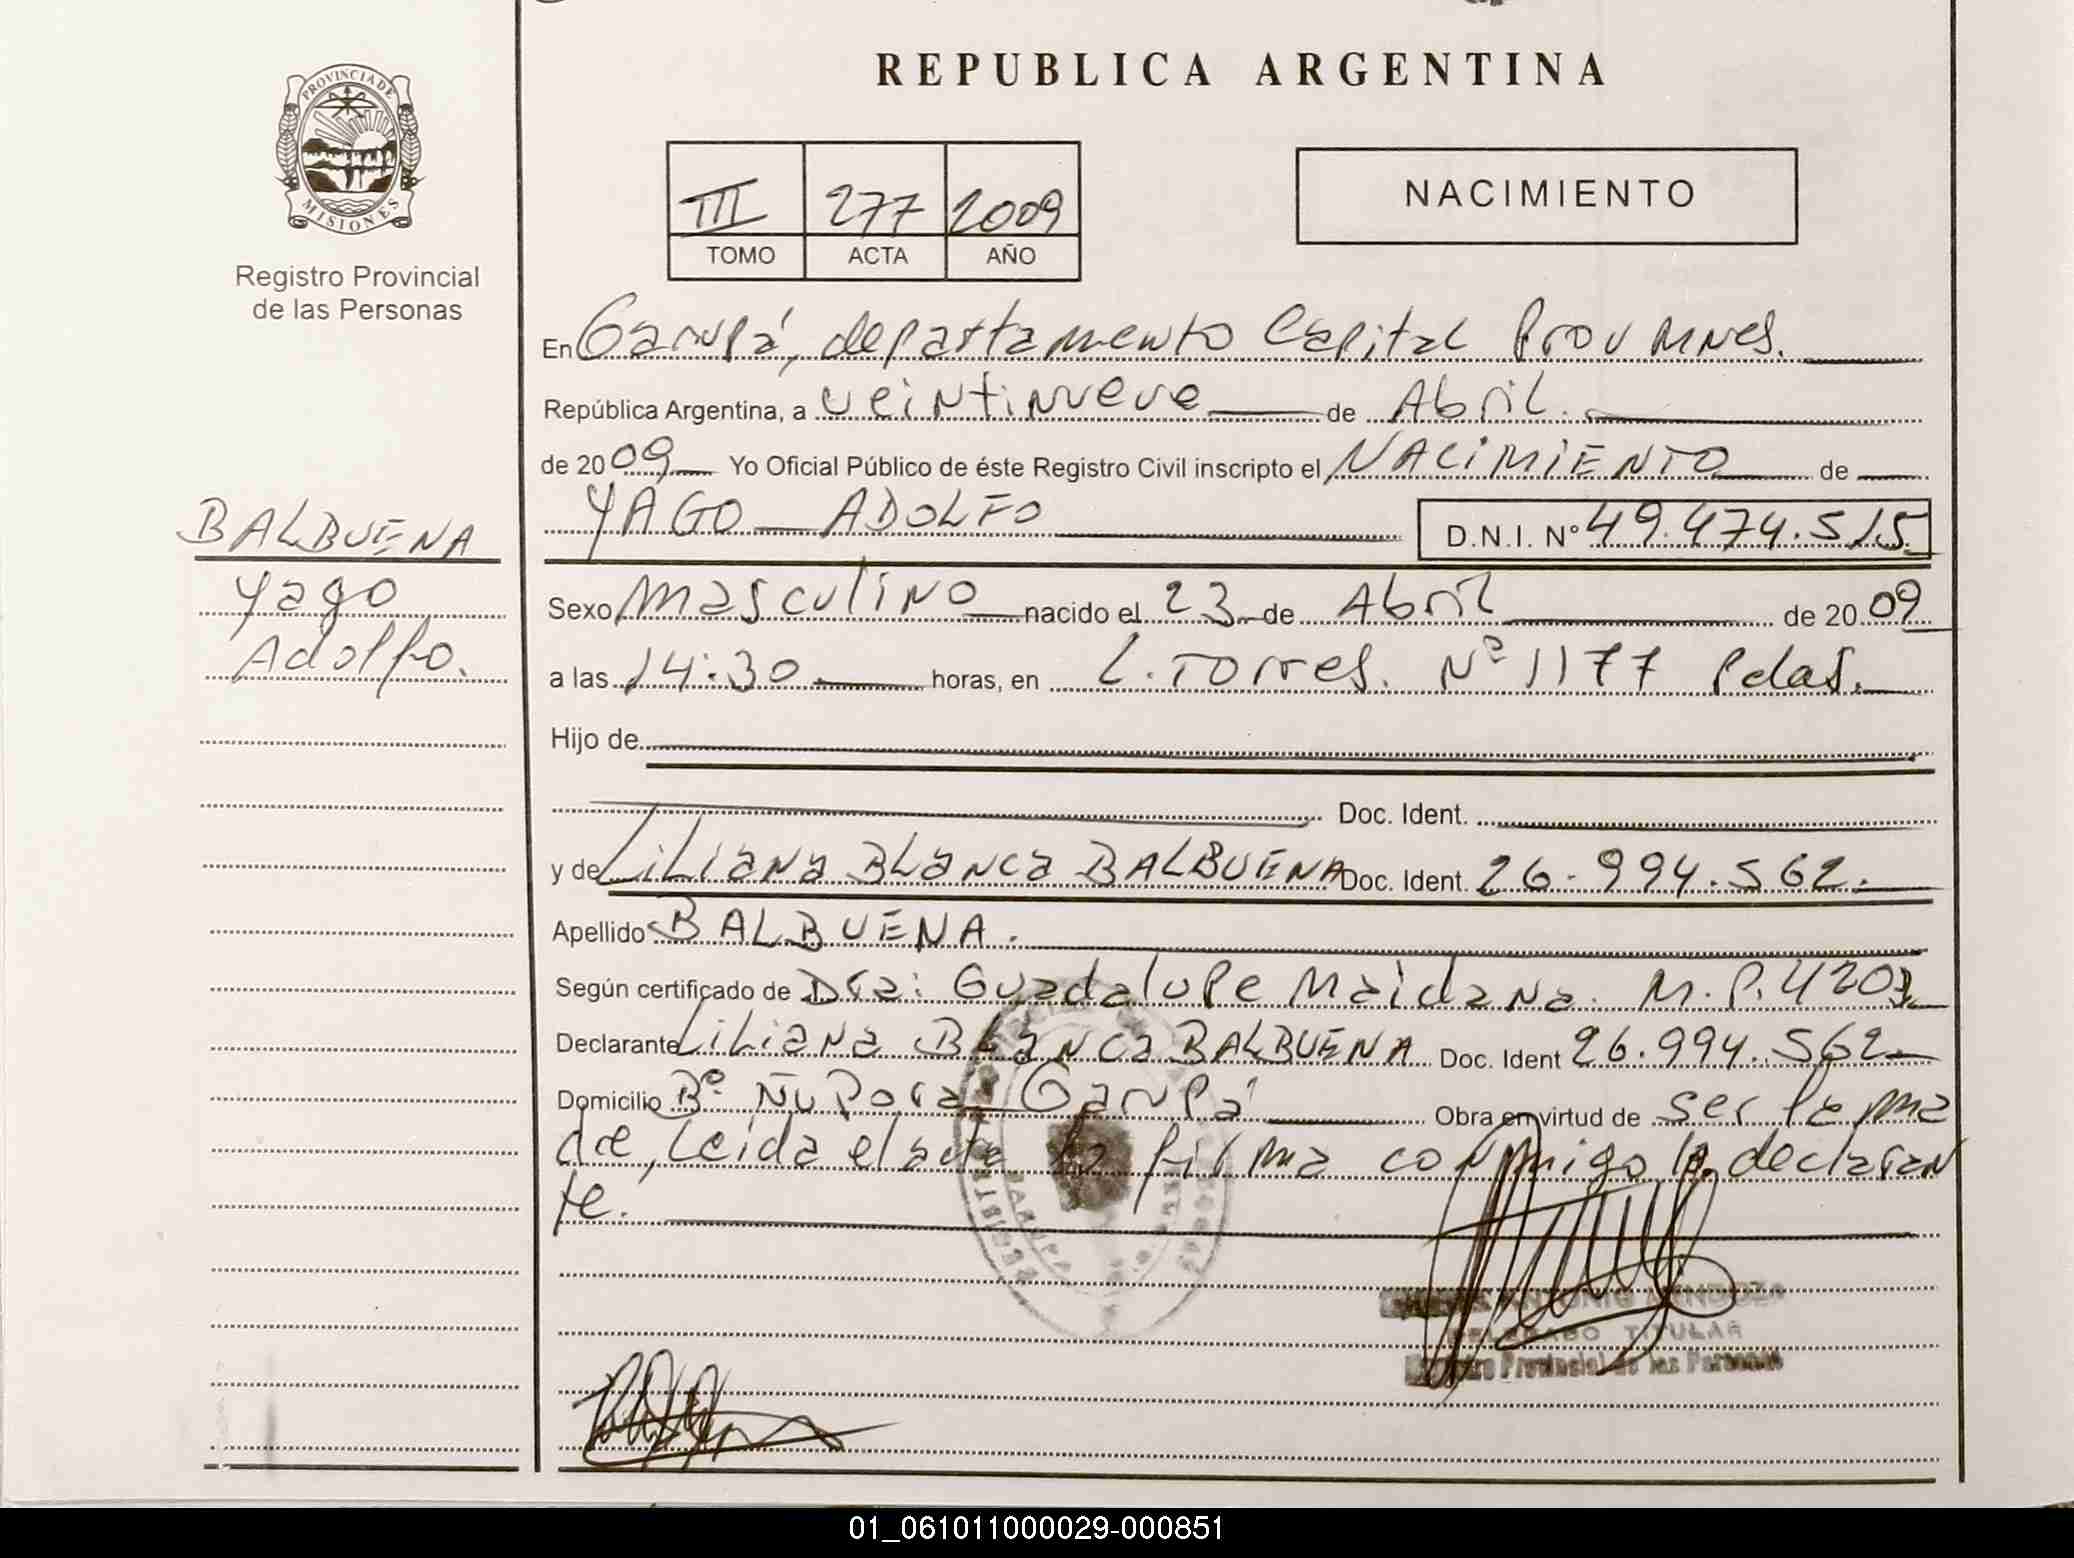 REPUBLICA ARGENTINA
PROVINCIA DE MISIONES
Registro Provincial
de las Personas
III 277 2009
TOMO ACTA AÑO
NACIMIENTO
En Garupá, departamento Capital Prov Mnes.
República Argentina, a veintinueve de Abril.
de 2009 Yo Oficial Público de éste Registro Civil inscripto el NACIMIENTO de
YAGO ADOLFO D.N.I. Nº 49.474.515
BALBUENA
Yago
Adolfo.
Sexo masculino nacido el 23 de Abril de 2009
a las 14:30 horas, en L. Torres. Nº 1177 Pdas.
Hijo de
Doc. Ident.
y de Liliana Blanca BALBUENA Doc. Ident. 26.994.562.
Apellido BALBUENA.
Según certificado de Dra: Guadalupe Maidana. M.P. 4203
Declarante Liliana Blanca BALBUENA Doc. Ident 26.994.562
Domicilio Bº Ñu Pora Garupá Obra en virtud de ser la ma
dre, Leida el acta la firma conmigo la declaran
te.
ANTONIO MENDOZA
DELEGADO TITULAR
Registro Provincial de las Personas
01_061011000029-000851